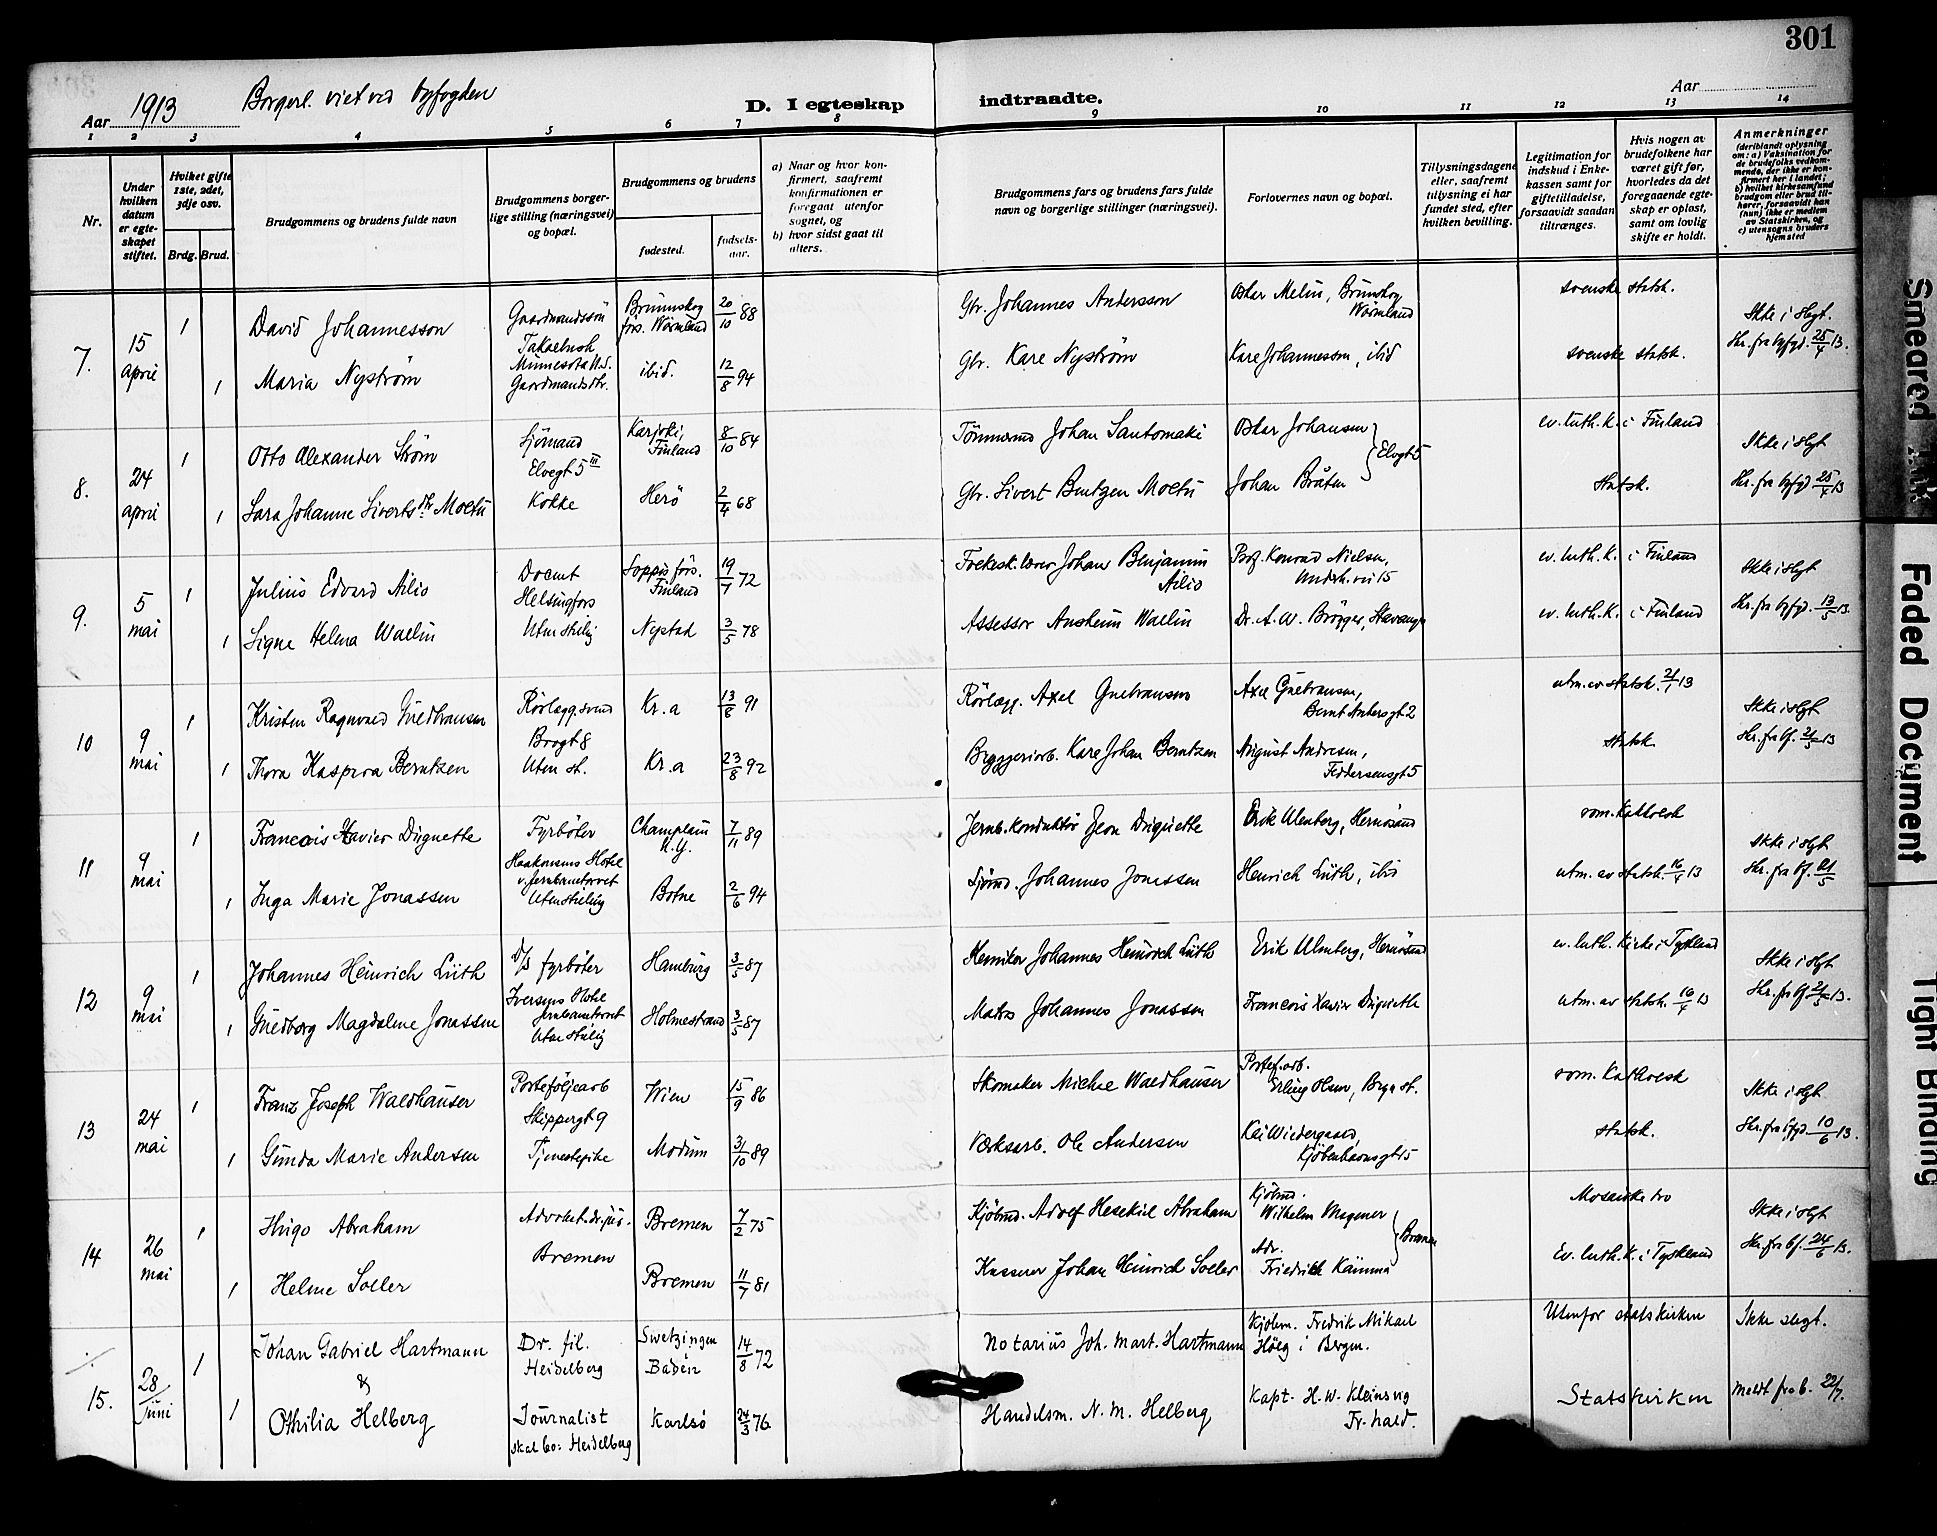 301
Aar 1913 Borgerl. viet ved byfogden D. I egteskap indtraadte. Aar
1 2 3 4 5 6 7 8 9 10 11 12 13 14
Nr.
Under hvilken datum er egteskapet stiftet.
Hvilket gifte 1ste, 2det, 3dje osv.
Brdg. Brud.
Brudgommens og brudens fulde navn
Brudgommens borgerlige stilling (næringsvei) og bopæl.
Brudgommens og brudens
fødested.
fødselsaar.
a) Naar og hvor konfirmert, saafremt konfirmationen er foregaat utenfor sognet, og
b) hvor sidst gaat til alters.
Brudgommens fars og brudens fars fulde navn og borgerlige stillinger (næringsvei).
Forlovernes navn og bopæl.
Tillysningsdagene eller, saafremt tillysning ei har fundet sted, efter hvilken bevilling.
Legitimation for indskud i Enkekassen samt for giftetilladelse, forsaavidt saadan tiltrænges.
Hvis nogen av brudefolkene har været gift før, hvorledes da det foregaaende egteskap er opløst, samt om lovlig skifte er holdt.
Anmerkninger (deriblandt oplysning om: a) Vaksination for de brudefolks vedkommende, der ikke er konfirmert her i landet; b) hvilket kirkesamfund brudgom eller brud tilhører, forsaavidt han (hun) ikke er medlem av Statskirken, og c) utensogns bruders hjemsted
7. 15 april
1 David Johannesson Gaardmandssøn Brunnskog førs. Wärmland 20/10 88 Gbr. Johannes Andersson Oskar Melin, Brunskog Wärmland svenske statsk. Ikke i slegt.
Minnesota U.S.
1 Maria Nyström Gaardmandsdtr. ibid. 12/8 94 Gbr. Karl Nyström Karl Johannesson, ibid svenske statsk. Skr. fra byfgd. 25/4 13.
8. 24 april
1 Otto Alexander Strøm Sjömand Elvegt 5 III Karjoki, Finland 8/10 84 Tömmermd Johan Santomaki Oskar Johansen ev. luth. k. i Finland Ikke i slegt
1 Sara Johanne Sivertsdtr. Moetu Kokke Herö 2/4 68 Gbr. Sivert Bentzen Moetu Johan Bråten } Elvgt 5 Statsk. Skr. fra byfgd 25/4 13
9. 5 mai
1 Julius Edvard Ailio Docent Helsingfors Loppis förs. Finland 19/7 72 Folkesk.lærer Johan Benjamin Ailio Prof. Konrad Nielsen, ev. luth. k. i Finland Ikke i slegt
1 Signe Helena Wallin Uten stillig Nystad 3/5 78 Assessor Anshelm Wallin Dr. A. W. Brögger, Stavanger ev. luth. K. i Finland Skr. fra byfgd. 13/5 13.
10 9 mai
1 Kristen Ragnvald Guldbransen Rörlægg.svend Brogt 8 Kr.a 13/8 91 Rörlægg. Axel Gulbransen Axel Gulbransen, Bernt Ankersgt 2 utm. av statsk. 2/1 13 Ikke i slegt
1 Thora Kaspara Berntzen Uten st. Kr.a 23/8 92 Bryggeriarb. Karl Johan Berntzen August Andresen, Feddersensgt 5 statsk. Skr. fra bf. 21/5 13
11 9 mai
1 Francois Xavier Duquette Fyrböter Champlain N.Y. 7/11 89 Jernb.konduktör Jean Duquette Erik Ulenberg, Hernösand rom. Katholsk Ikke i slegt
Haakonsens Hotel v. Jernbanetorvet
1 Inga Marie Jonassen Uten stilling Botne 2/6 94 Sjömd. Johannes Jonassen Henrich Lüth, ibid utm. av statsk. 16/4 13 Skr. fra bf. 21/5
12 9 mai
1 Johannes Heinrich Lüth D/S fyrböter Hamburg 3/5 87 Johannes Heinrich Lüth Erik Ulenberg, Hernösand ev. luth. Kirke i Tyskland Ikke i slegt
Iversens Hotel Jernbanetorvet
1 Guldborg Magdalene Jonassen Uten stillig Holmestrand 3/5 87 Matros Johannes Jonassen Francois Xavier Duquette utm. av statsk. 16/4 13 Skr. fra bf 21/5 13.
13 24 mai
1 Franz Joseph Waldhauser Porteföljearb Skippergt 9 Wien 15/9 86 Skomaker Michal Waldhauser Portef.arb. Erling Olsen, Brga st. rom. Katholsk Ikke i slegt
1 Gunda Marie Andersen Tjenestepike Modum 31/10 89 Verksarb. Ole Andersen Kjöbenhavnsgt 15 statsk. Skr. fra byfgd. 10/6 13.
14 26 mai
1 Hugo Abraham Advokat. dr. jur. Bremen Bremen 7/2 75 Kjöbmd. Adolf Hesekiel Abraham Kjöbmd. Wilhelm Wagener Mosaiske tro Ikke i slegt
1 Helene Soller Bremen 11/7 81 Johan Heinrich Soller Adv. Friedrich } Bremen Ev. luth. K. i Tyskland Skr. fra bf. 24/6 13.
15. 28/Juni
1 Johan Gabriel Hartmann Dr. fil. Heidelberg Swetzingen Baden 14/8 72 Notarius Joh. Mart. Hartmann Kjøbm. Fredrik Mikael Høeg i Bergen. Utenfor statskirken Ikke slegt.
&
1 Othilia Helberg Journalist skal bo: Heidelberg Karlsö 24/3 76 Handelsm. N. M. Helberg Kapt. H. W. Kleinsvig Fr.hald. Statskirken meldt fra b. 22/7.
Smeared Ink
Faded Document
Tight Binding